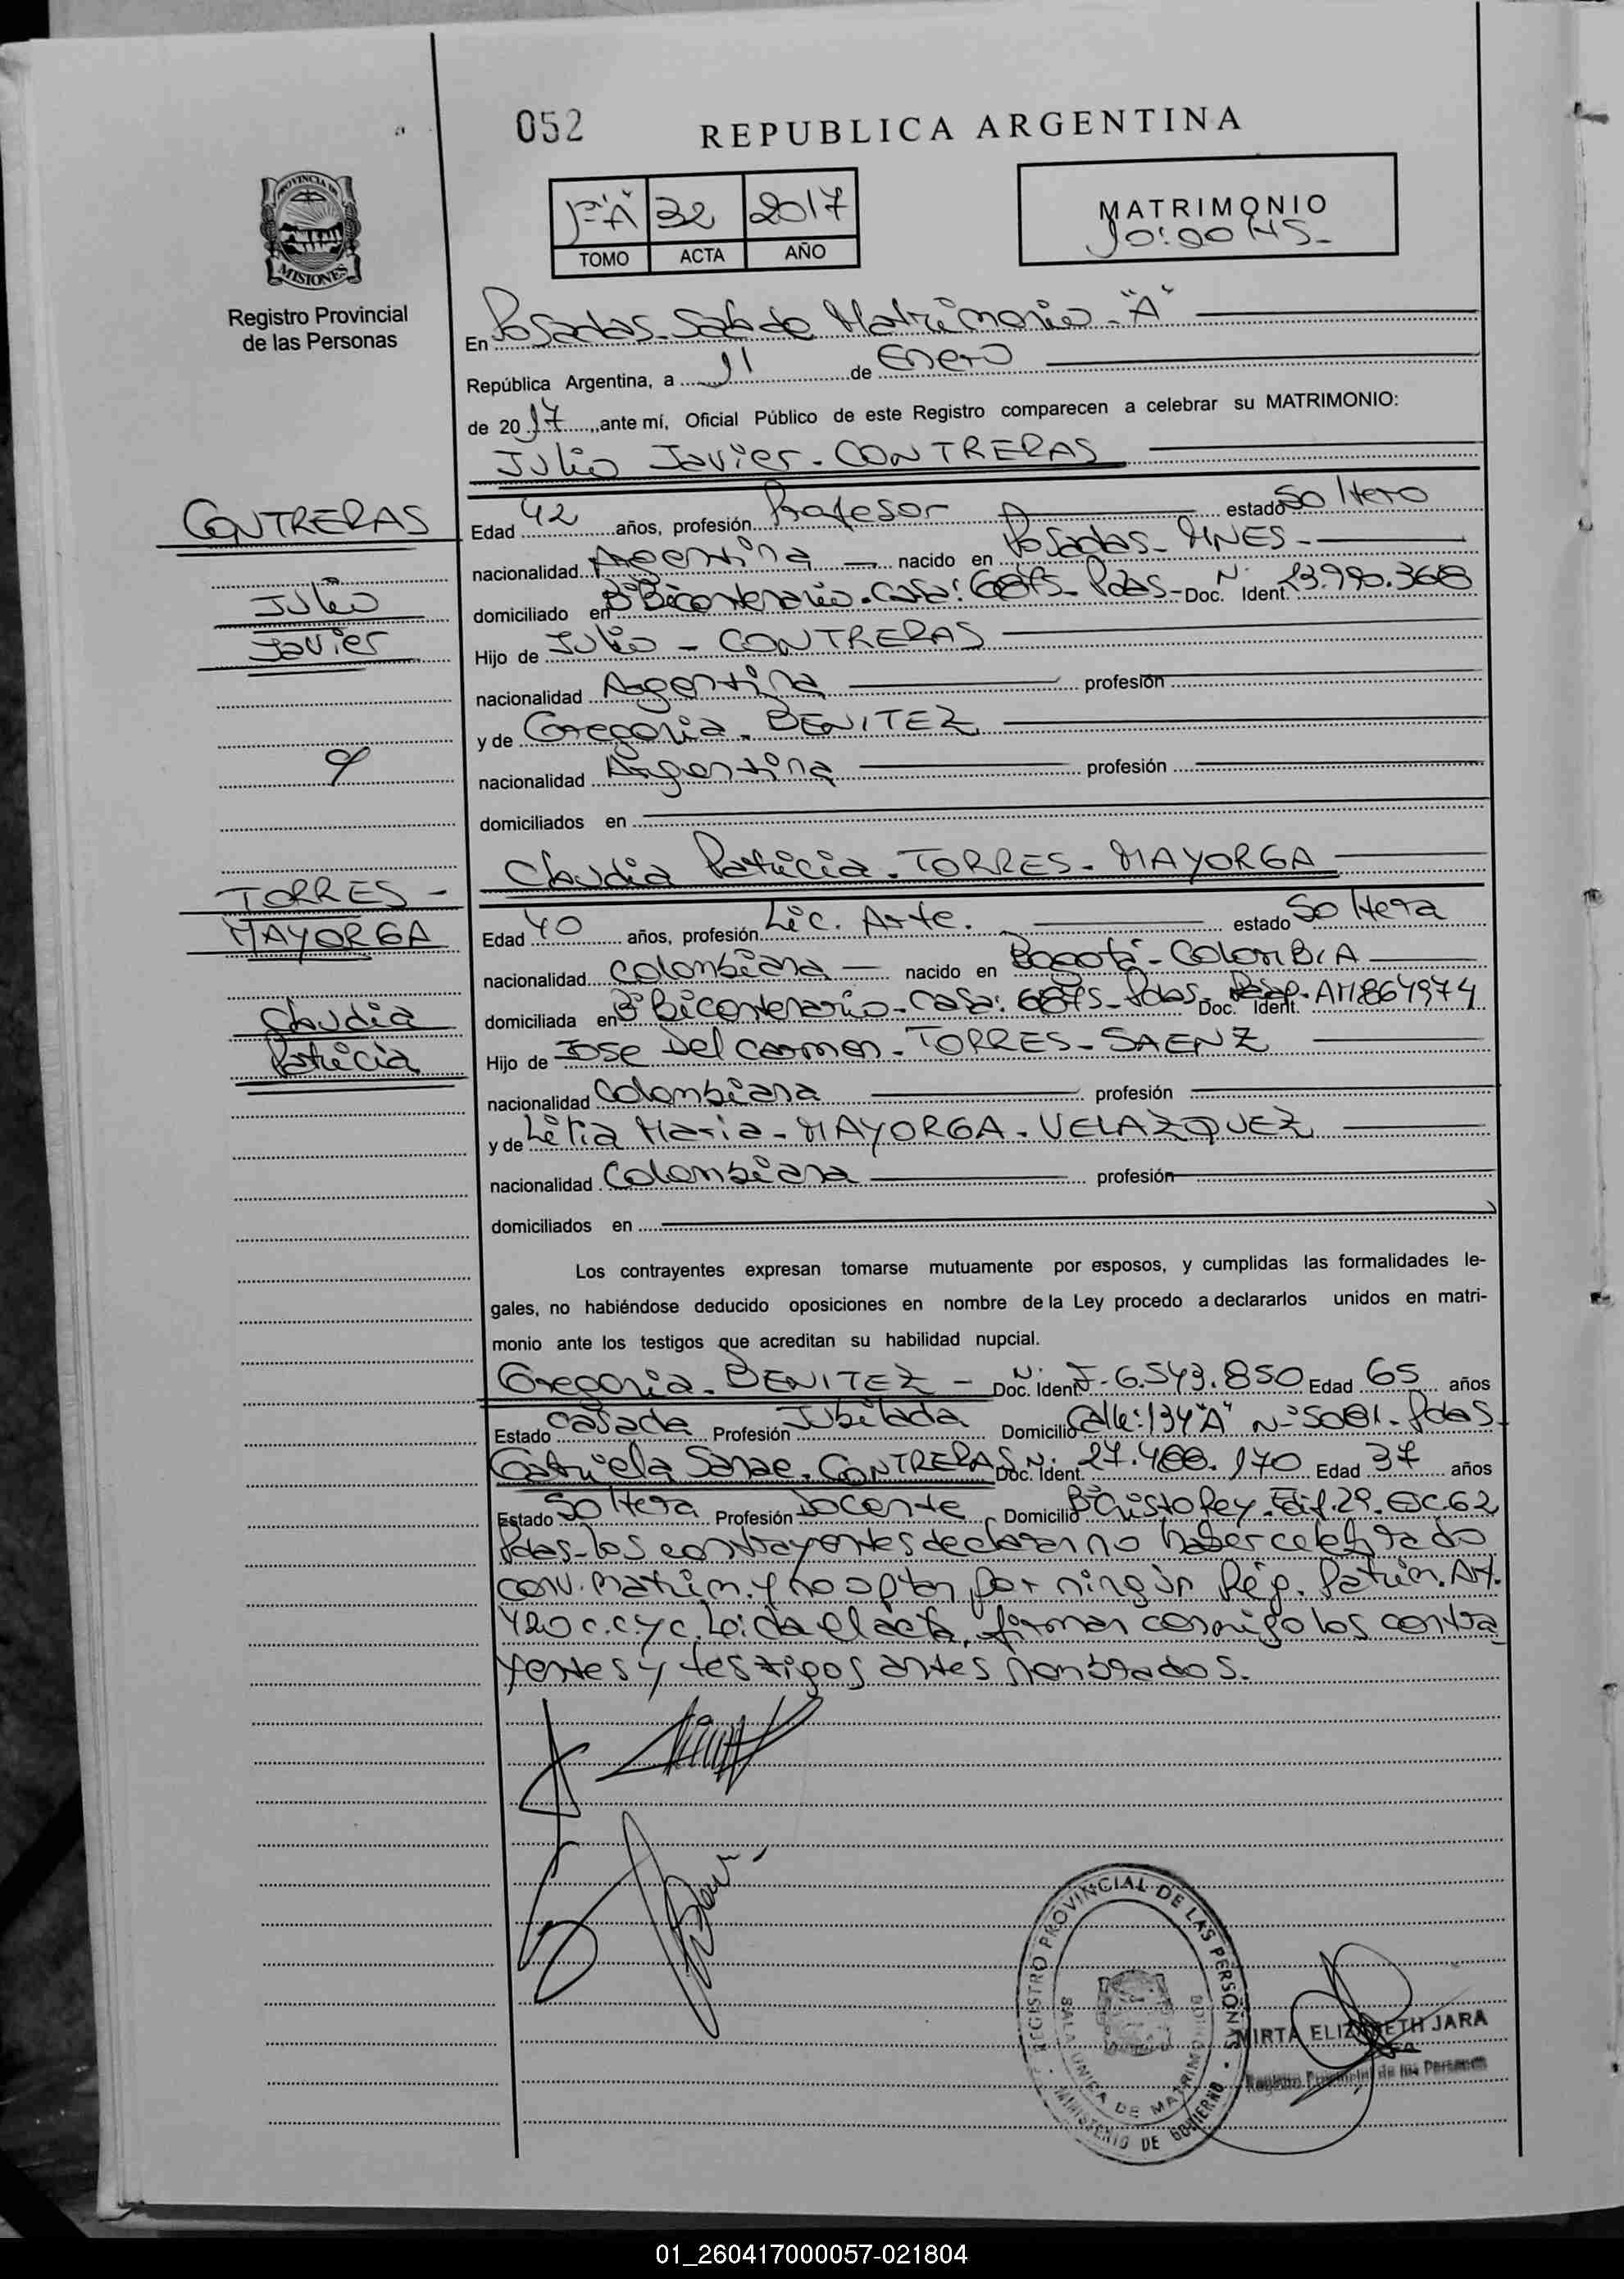 052 REPUBLICA ARGENTINA
1º"A" 32 2017
TOMO ACTA AÑO
MATRIMONIO
10:00 HS-
PROVINCIA DE
MISIONES
Registro Provincial
de las Personas
En Posadas-Sala de Matrimonio-"A"
República Argentina, a 11 de Enero
de 2017, ante mí, Oficial Público de este Registro comparecen a celebrar su MATRIMONIO:
Julio Javier-CONTRERAS
CONTRERAS
Julio
Javier
y
Edad 42 años, profesión Profesor estado Soltero
nacionalidad Argentina nacido en Posadas-MNES-
domiciliado en Bº Bicentenario-Casa: 6875-Pdas- Doc. Ident. Nº 23.990.368
Hijo de Julio - CONTRERAS
nacionalidad Argentina profesión
y de Gregoria-BENITEZ
nacionalidad Argentina profesión
domiciliados en
Claudia Patricia-TORRES-MAYORGA
TORRES-
MAYORGA
Claudia
Patricia
Edad 40 años, profesión Lic. Arte. estado Soltera
nacionalidad Colombiana nacido en Bogotá-COLOMBIA
domiciliada en Bº Bicentenario-Casa: 6875-Pdas- Doc. Ident. Pasap. AM864974
Hijo de Jose Del Carmen-TORRES-SAENZ
nacionalidad Colombiana profesión
y de Litia Maria-MAYORGA-VELAZQUEZ
nacionalidad Colombiana profesión
domiciliados en
Los contrayentes expresan tomarse mutuamente por esposos, y cumplidas las formalidades le-
gales, no habiéndose deducido oposiciones en nombre de la Ley procedo a declararlos unidos en matri-
monio ante los testigos que acreditan su habilidad nupcial.
Gregoria-BENITEZ- Doc. Ident. Nº F-6.543.850 Edad 65 años
Estado Casada Profesión Jubilada Domicilio Calle: 134"A" Nº 5081-Pdas-
Gabriela Sanae-CONTRERAS Doc. Ident. Nº 27.488.170 Edad 37 años
Estado Soltera Profesión Docente Domicilio Bº Cristo Rey-Edif.29-ESC.62
Pdas-los contrayentes declaran no haber celebrado
conv. matrim. y no optan por ningún Rég. Patrim. Art.
420 c.c.y c. Leída el acta, firman conmigo los contra
yentes y testigos antes nombrados.
REGISTRO PROVINCIAL DE LAS PERSONAS
SALA UNICA DE MATRIMONIO
MINISTERIO DE GOBIERNO
MIRTA ELIZABETH JARA
Registro Provincial de las Personas
01_260417000057-021804